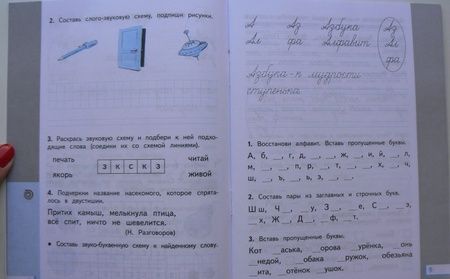 2. Составь слого-звуковую схему, подпиши рисунки.
3. Раскрась звуковую схему и подбери к ней подхо-
дящие слова (соедини их со схемой линиями).
печать
читай
З К С К З
якорь
живой
4. Подчеркни название насекомого, которое спрята-
лось в двустишии.
Притих камыш, мелькнула птица,
всё спит, ничто не шевелится.
(Н. Разговоров)
• Составь звуко-буквенную схему к найденному слову.
А Аз Азбука Аз
Ал фа Алфавит Ал
фа
Азбука - к мудрости
ступенька
1. Восстанови алфавит. Вставь пропущенные буквы.
2. Составь пары из заглавных и строчных букв.
3. Вставь пропущенные буквы.
Кот аська, орова урёнка, онь
недой, обака ружок, обезьяна
ита, отёнок ушок.